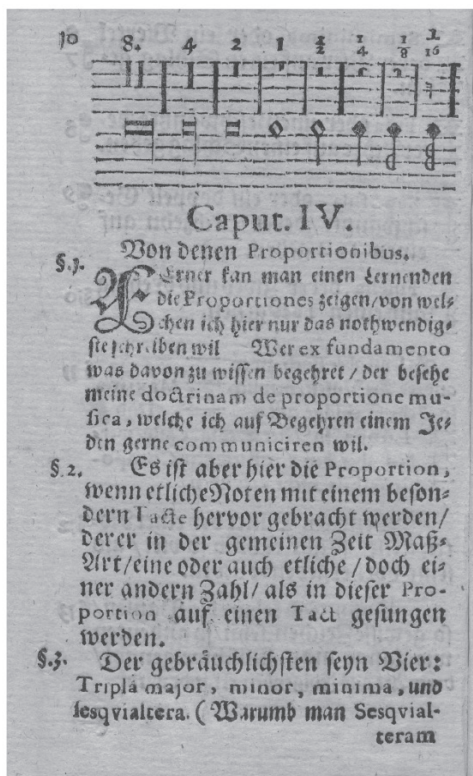 10 8. 4 2 1 1/2 1/4 1/8 1/16
Caput. IV.
Von denen Proportionibus.
§.1. FErner kan man einen Lernenden
die Proportiones zeigen/von wel-
chen ich hier nur das nothwendig-
ste schreiben wil Wer ex fundamento
was davon zu wissen begehret / der besehe
meine doctrinam de proportione mu-
sica, welche ich auf Begehren einem Je-
den gerne communiciren wil.
§.2. Es ist aber hier die Proportion,
wenn etliche Noten mit einem beson-
dern Tacte hervor gebracht werden/
derer in der gemeinen Zeit Maß-
Art/eine oder auch etliche / doch ei-
ner andern Zahl/ als in dieser Pro-
portion auf einen Tact gesungen
werden.
§.3. Der gebräuchlichsten seyn Vier:
Tripla major, minor, minima, und
sesqvialtera. (Warumb man Sesqvial-
teram